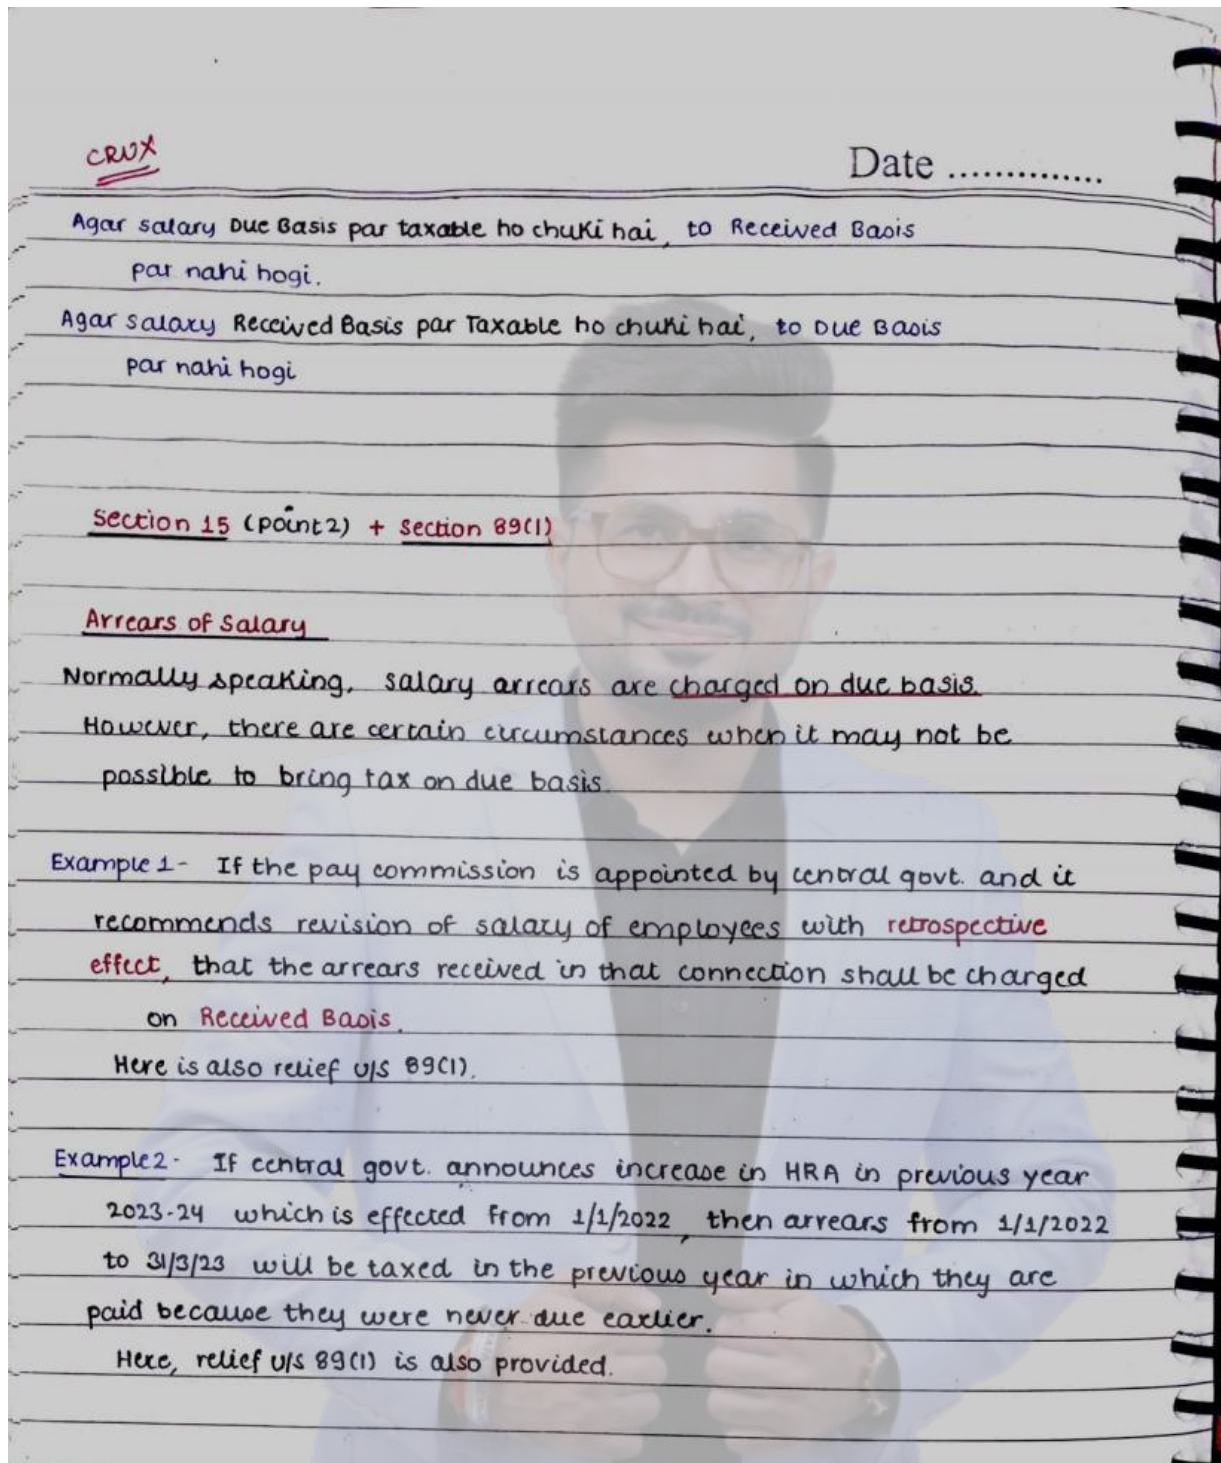 CRUX
Date ..............
Agar salary Due Basis par taxable ho chuki hai, to Received Basis
par nahi hogi.
Agar salary Received Basis par Taxable ho chuki hai, to Due Basis
par nahi hogi
Section 15 (point 2) + Section 89(1)
Arrears of Salary
Normally speaking, salary arrears are charged on due basis.
However, there are certain circumstances when it may not be
possible to bring tax on due basis.
Example 1- If the pay commission is appointed by central govt. and it
recommends revision of salary of employees with retrospective
effect, that the arrears received in that connection shall be charged
on Received Basis.
Here is also relief u/s 89(1).
Example 2- If central govt. announces increase in HRA in previous year
2023-24 which is effected from 1/1/2022, then arrears from 1/1/2022
to 31/3/23 will be taxed in the previous year in which they are
paid because they were never due earlier.
Here, relief u/s 89(1) is also provided.